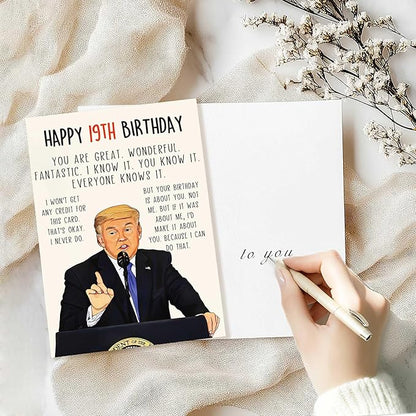 HAPPY 19TH BIRTHDAY
YOU ARE GREAT. WONDERFUL.
FANTASTIC. I KNOW IT. YOU KNOW IT.
EVERYONE KNOWS IT.
I WON'T GET
ANY CREDIT FOR
THIS CARD.
THAT'S OKAY.
I NEVER DO.
BUT YOUR BIRTHDAY
IS ABOUT YOU. NOT
ME. BUT IF IT WAS
ABOUT ME, I'D
MAKE IT ABOUT
YOU. BECAUSE I CAN
DO THAT.
to you